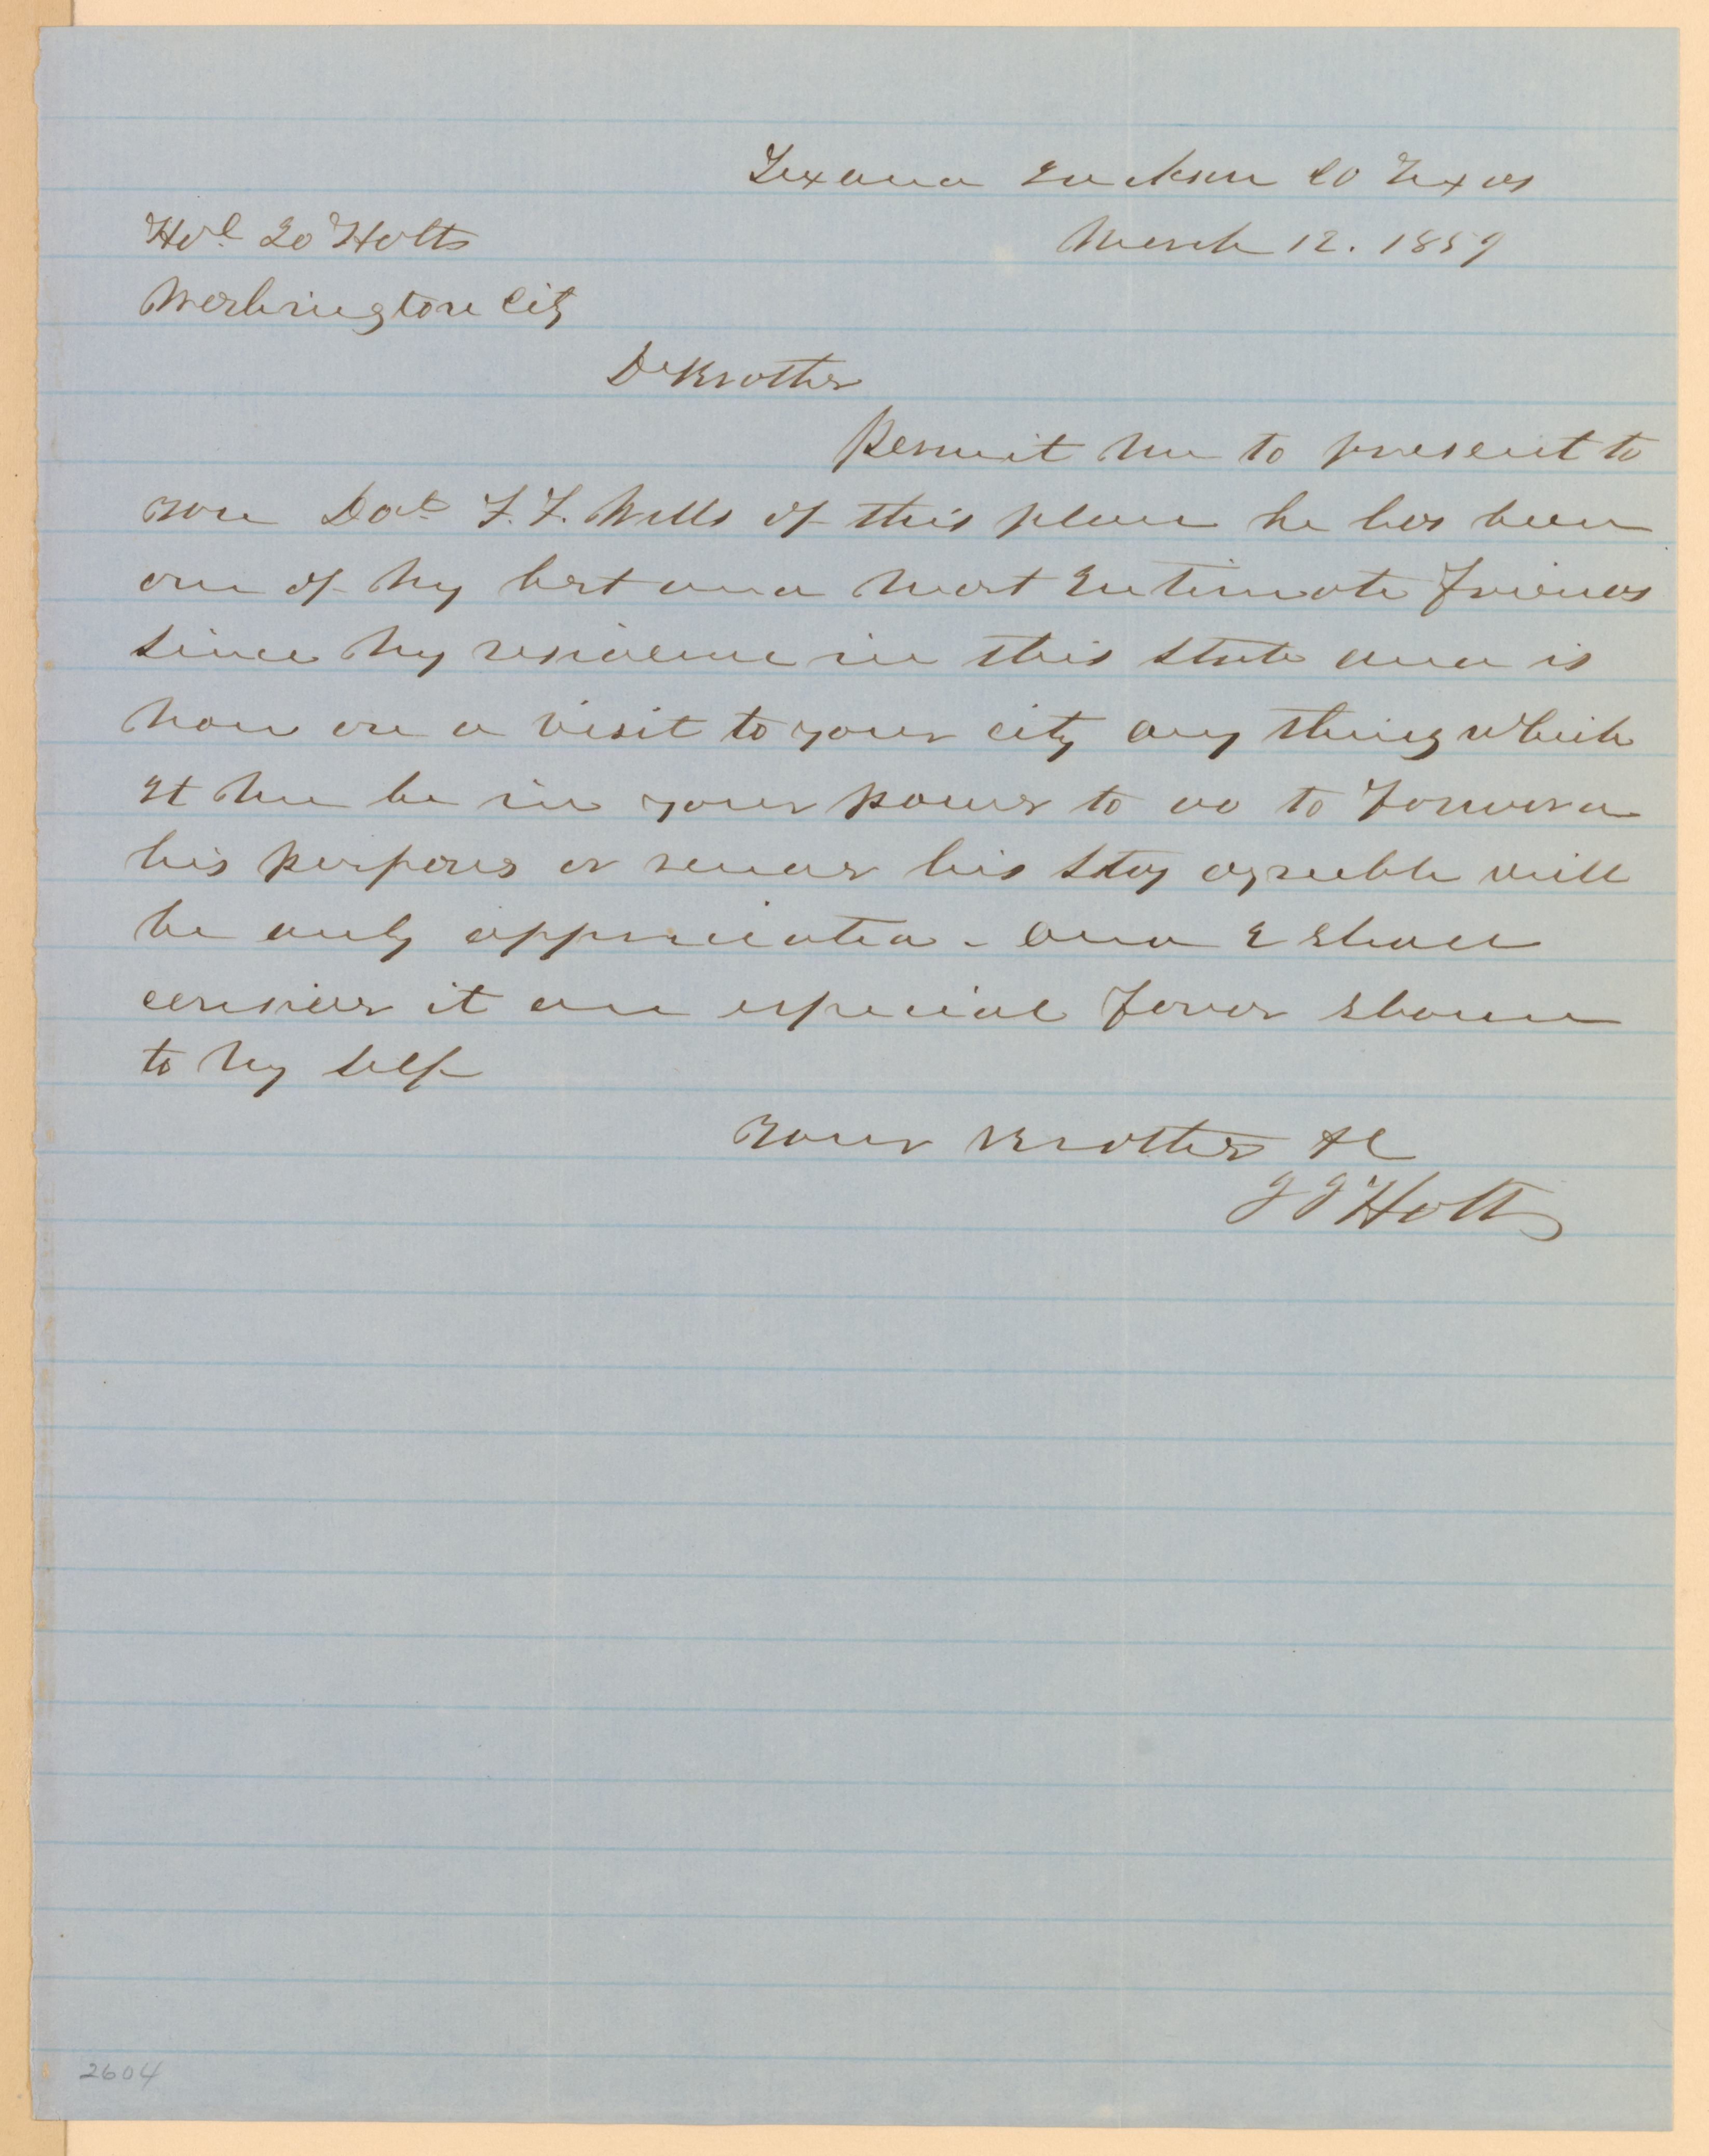 Texana Jackson Co Texas
Hol Jo Holts
March 12. 1859
Washington City
Dr Brother
Permit me to present to
you Doct F. F. Wells of this place he has been
one of my best and most Intimate friends
since my residence in this state and is
now on a visit to your city any thing which
It me be in your power to do to forward
his purposes or render his stay agreeble will
be duly appreciated - and I shall
consider it an especial favor shown
to my self
Your Brother &c
J J Holt
2604